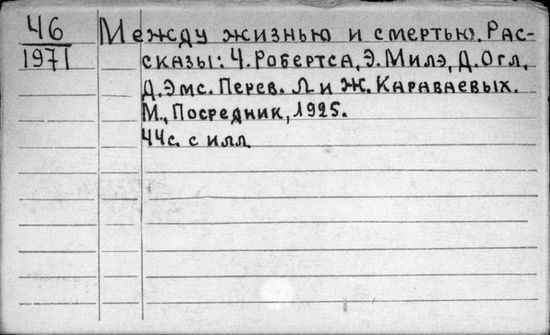 46
1971
Между жизнью и смертью. Рас-
сказы: Ч. Робертса, Э. Милэ, Д. Огл,
Д. Эмс. Перев. Л. и Ж. Караваевых.
М., Посредник, 1925.
44с. с илл.